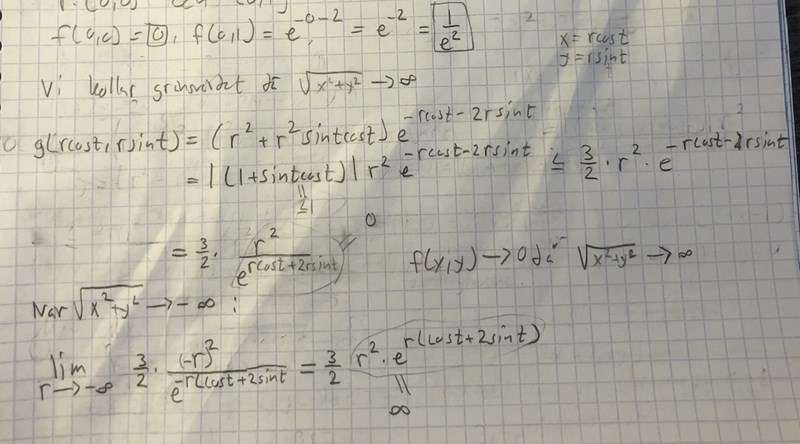 f(0,0) = 0, f(0,1) = e^{-0-2} = e^{-2} = 1/e^2
x = rcost
y = rsint
Vi kollar gränsvärdet då √(x²+y²) → ∞
g(rcost, rsint) = (r² + r² sintcost) e^{-rcost-2rsint}
= |(1+sintcost)| r² e^{-rcost-2rsint} ≤ 3/2 · r² · e^{-rcost-2rsint}
≤1
= 3/2 · r²/e^{rcost+2rsint} 0 f(x,y) → 0 då √(x²+y²) → ∞
När √(x²+y²) → -∞ :
lim r→-∞ 3/2 · (-r)²/e^{-r(cost+2sint} = 3/2 r² · e^{r(cost+2sint)}
= ∞